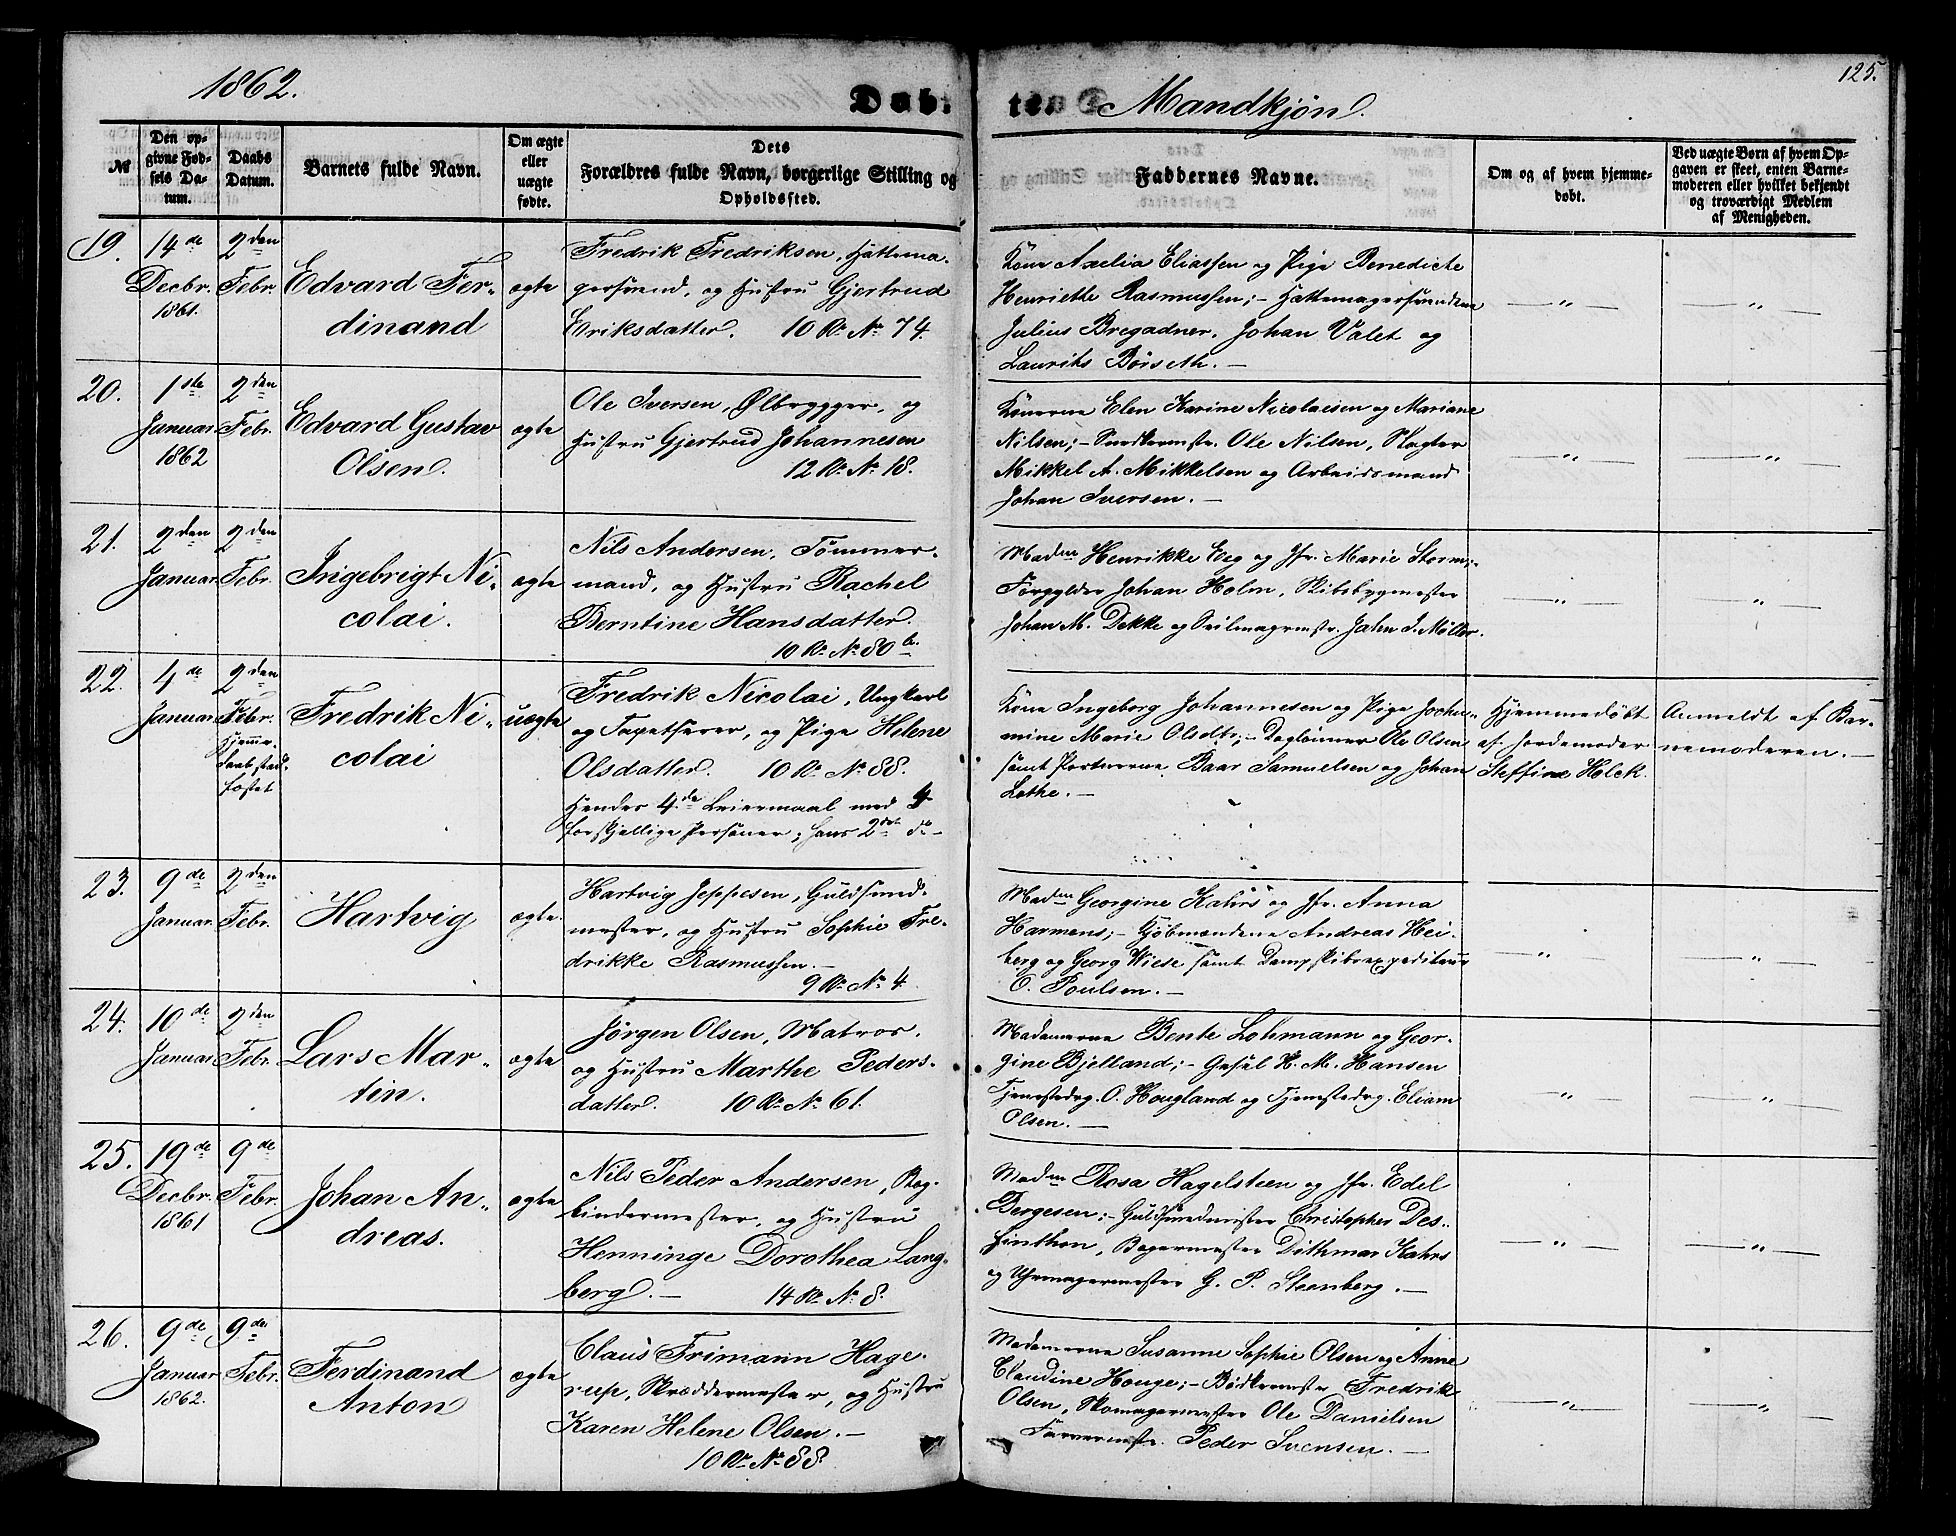 1862.
Døb-
te.
Mandkjøn.
125.
№
Den op-
givne Fød-
sels Da-
tum.
Daabs
Datum.
Barnets fulde Navn.
Om ægte
eller
uægte
fødte.
Dets
Forældres fulde Navn, borgerlige Stilling og
Opholdssted.
Faddernes Navne.
Om og af hvem hjemme-
døbt.
Ved uægte Børn af hvem Op-
gaven er skeet, enten Barne-
moderen eller hvilket bekjendt
og troværdigt Medlem
af Menigheden.
19.
14de
Decbr.
1861.
2den
Febr.
Edvard Fer-
dinand
ægte
Fredrik Fredriksen, Hattema-
gersvend, og Hustru Gjertrud
Eriksdatter. 10 R. № 74.
Kone Axelia Eliassen og Pige Benedicte
Henriette Rasmussen; - Hattemagersvendene
Julius Bregadner, Johan Valet og
Laurits Børseth. -
20.
1ste
Januar
1862
2den
Febr.
Edvard Gustav
Olsen.
ægte
Ole Iversen, Ølbrygger, og
Hustru Gjertrud Johannesen
12 R. № 18.
Konerne Elen Karine Nicolaisen og Mariane
Nilsen; - Snedkermstr. Ole Nilsen, Slagter
Mikkel A. Mikkelsen og Arbeidsmand
Johan Iversen. -
21.
2den
Januar
2den
Febr.
Ingebrigt Ni-
colai.
ægte
Nils Andersen, Tømmer-
mand, og Hustru Rachel
Berntine Hansdatter.
10 R. № 80 b.
Madm Henrikke Eeg og Jfr. Marie Storm; -
Forgylder Johan Holm, Skibsbygmester
Johan M. Dekke og Seilmagermstr. Jahn J. Møller.
22.
4de
Januar
2den
Febr.
Hjemme-
daab stad-
fæstet
Fredrik Ni-
colai
uægte
Fredrik Nicolai, Ungkarl
og Tapetserer, og Pige Helene
Olsdatter. 10 R. № 88.
Hendes 4de Leiermaal med 4
forskjellige Personer, hans 2det do -
Kone Ingeborg Johannesen og Pige Jochu-
mine Marie Olsdtr; - Daglønner Ole Olsen
samt Portnerne Baar Samuelsen og Johan
Lothe. -
Hjemmedøbt
af Jordemoder
Steffine Holck.
Anmeldt af Bar-
nemoderen. -
23.
9de
Januar
2den
Febr.
Hartvig
ægte.
Hartvig Jeppesen, Guldsmed-
mester, og Hustru Sophie Fre-
drikke Rasmussen. -
9 R. № 4.
Madm Georgine Kahrs og Jfr. Anna
Harmens; - Kjøbmændene Andreas Hei-
berg og Georg Wiese samt Dampskibsexpediteur
C. Poulsen. -
24.
10de
Januar
2den
Febr.
Lars Mar-
tin.
ægte
Jørgen Olsen, Matros,
og Hustru Marthe Peders-
datter. 10 R. № 61.
Madamerne Bente Lohmann og Geor-
gine Bjelland; - H. M. Hansen
Tjenestedrg. O. Hougland og Tjenestedrg. Eliam
Olsen. -
25.
19de
Decbr.
1861
9de
Febr.
Johan An-
dreas.
ægte
Nils Peder Andersen, Bog-
bindermester, og Hustru
Henninge Dorothea Lang-
berg. - 14 R. № 8.
Madm Rosa Hagelsteen og Jfr. Edel
Bergesen; - Guldsmedmester Christopher Des-
sinthon, Bagermester Dithmar Kahrs
og Uhrmagermester G. P. Steenberg. -
26.
9de
Januar
1862.
9de
Febr.
Ferdinand
Anton
ægte
Claus Frimann Hage-
rup, Skræddermester, og Hustru
Karen Helene Olsen. -
10 R. № 88.
Madamerne Susanne Sophie Olsen og Anne
Claudine Houge; - Bødkermstr Fredrik
Olsen, Skomagermester Ole Danielsen
Farvermstr. Peder Svensen. -